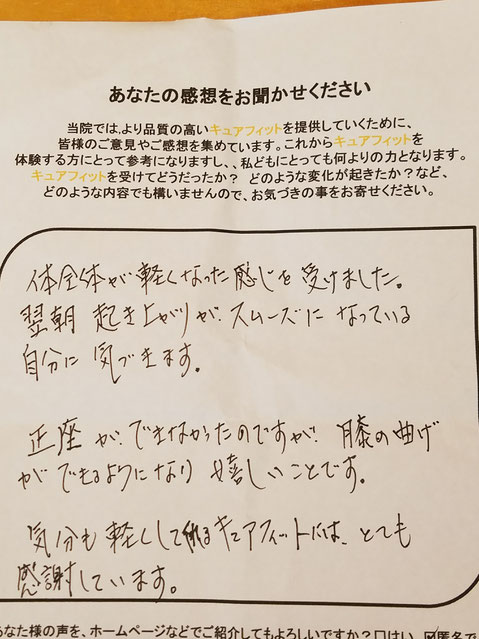 あなたの感想をお聞かせください
当院では、より品質の高いキュアフィットを提供していくために、
皆様のご意見やご感想を集めています。これからキュアフィットを
体験する方にとって参考になりますし、、私どもにとっても何よりの力となります。
キュアフィットを受けてどうだったか? どのような変化が起きたか?など、
どのような内容でも構いませんので、お気づきの事をお寄せください。
体全体が軽くなった感じを受けました。
翌朝 起き上がりが スムーズに なっている
自分に 気づきます。
正座が できなかったのですが 膝の曲げ
が できるようになり 嬉しいことです。
気分も 軽くして キュアフィットには、とても
感謝しています。
あなた様の声を、ホームページなどでご紹介してもよろしいですか?□はい、☑匿名で